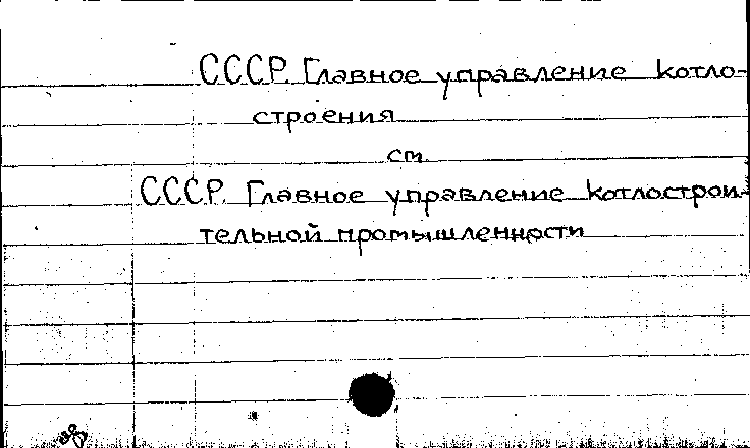 СССР. Главное управление котло-
строения
см.
СССР. Главное управление котлострои-
тельной промышленности